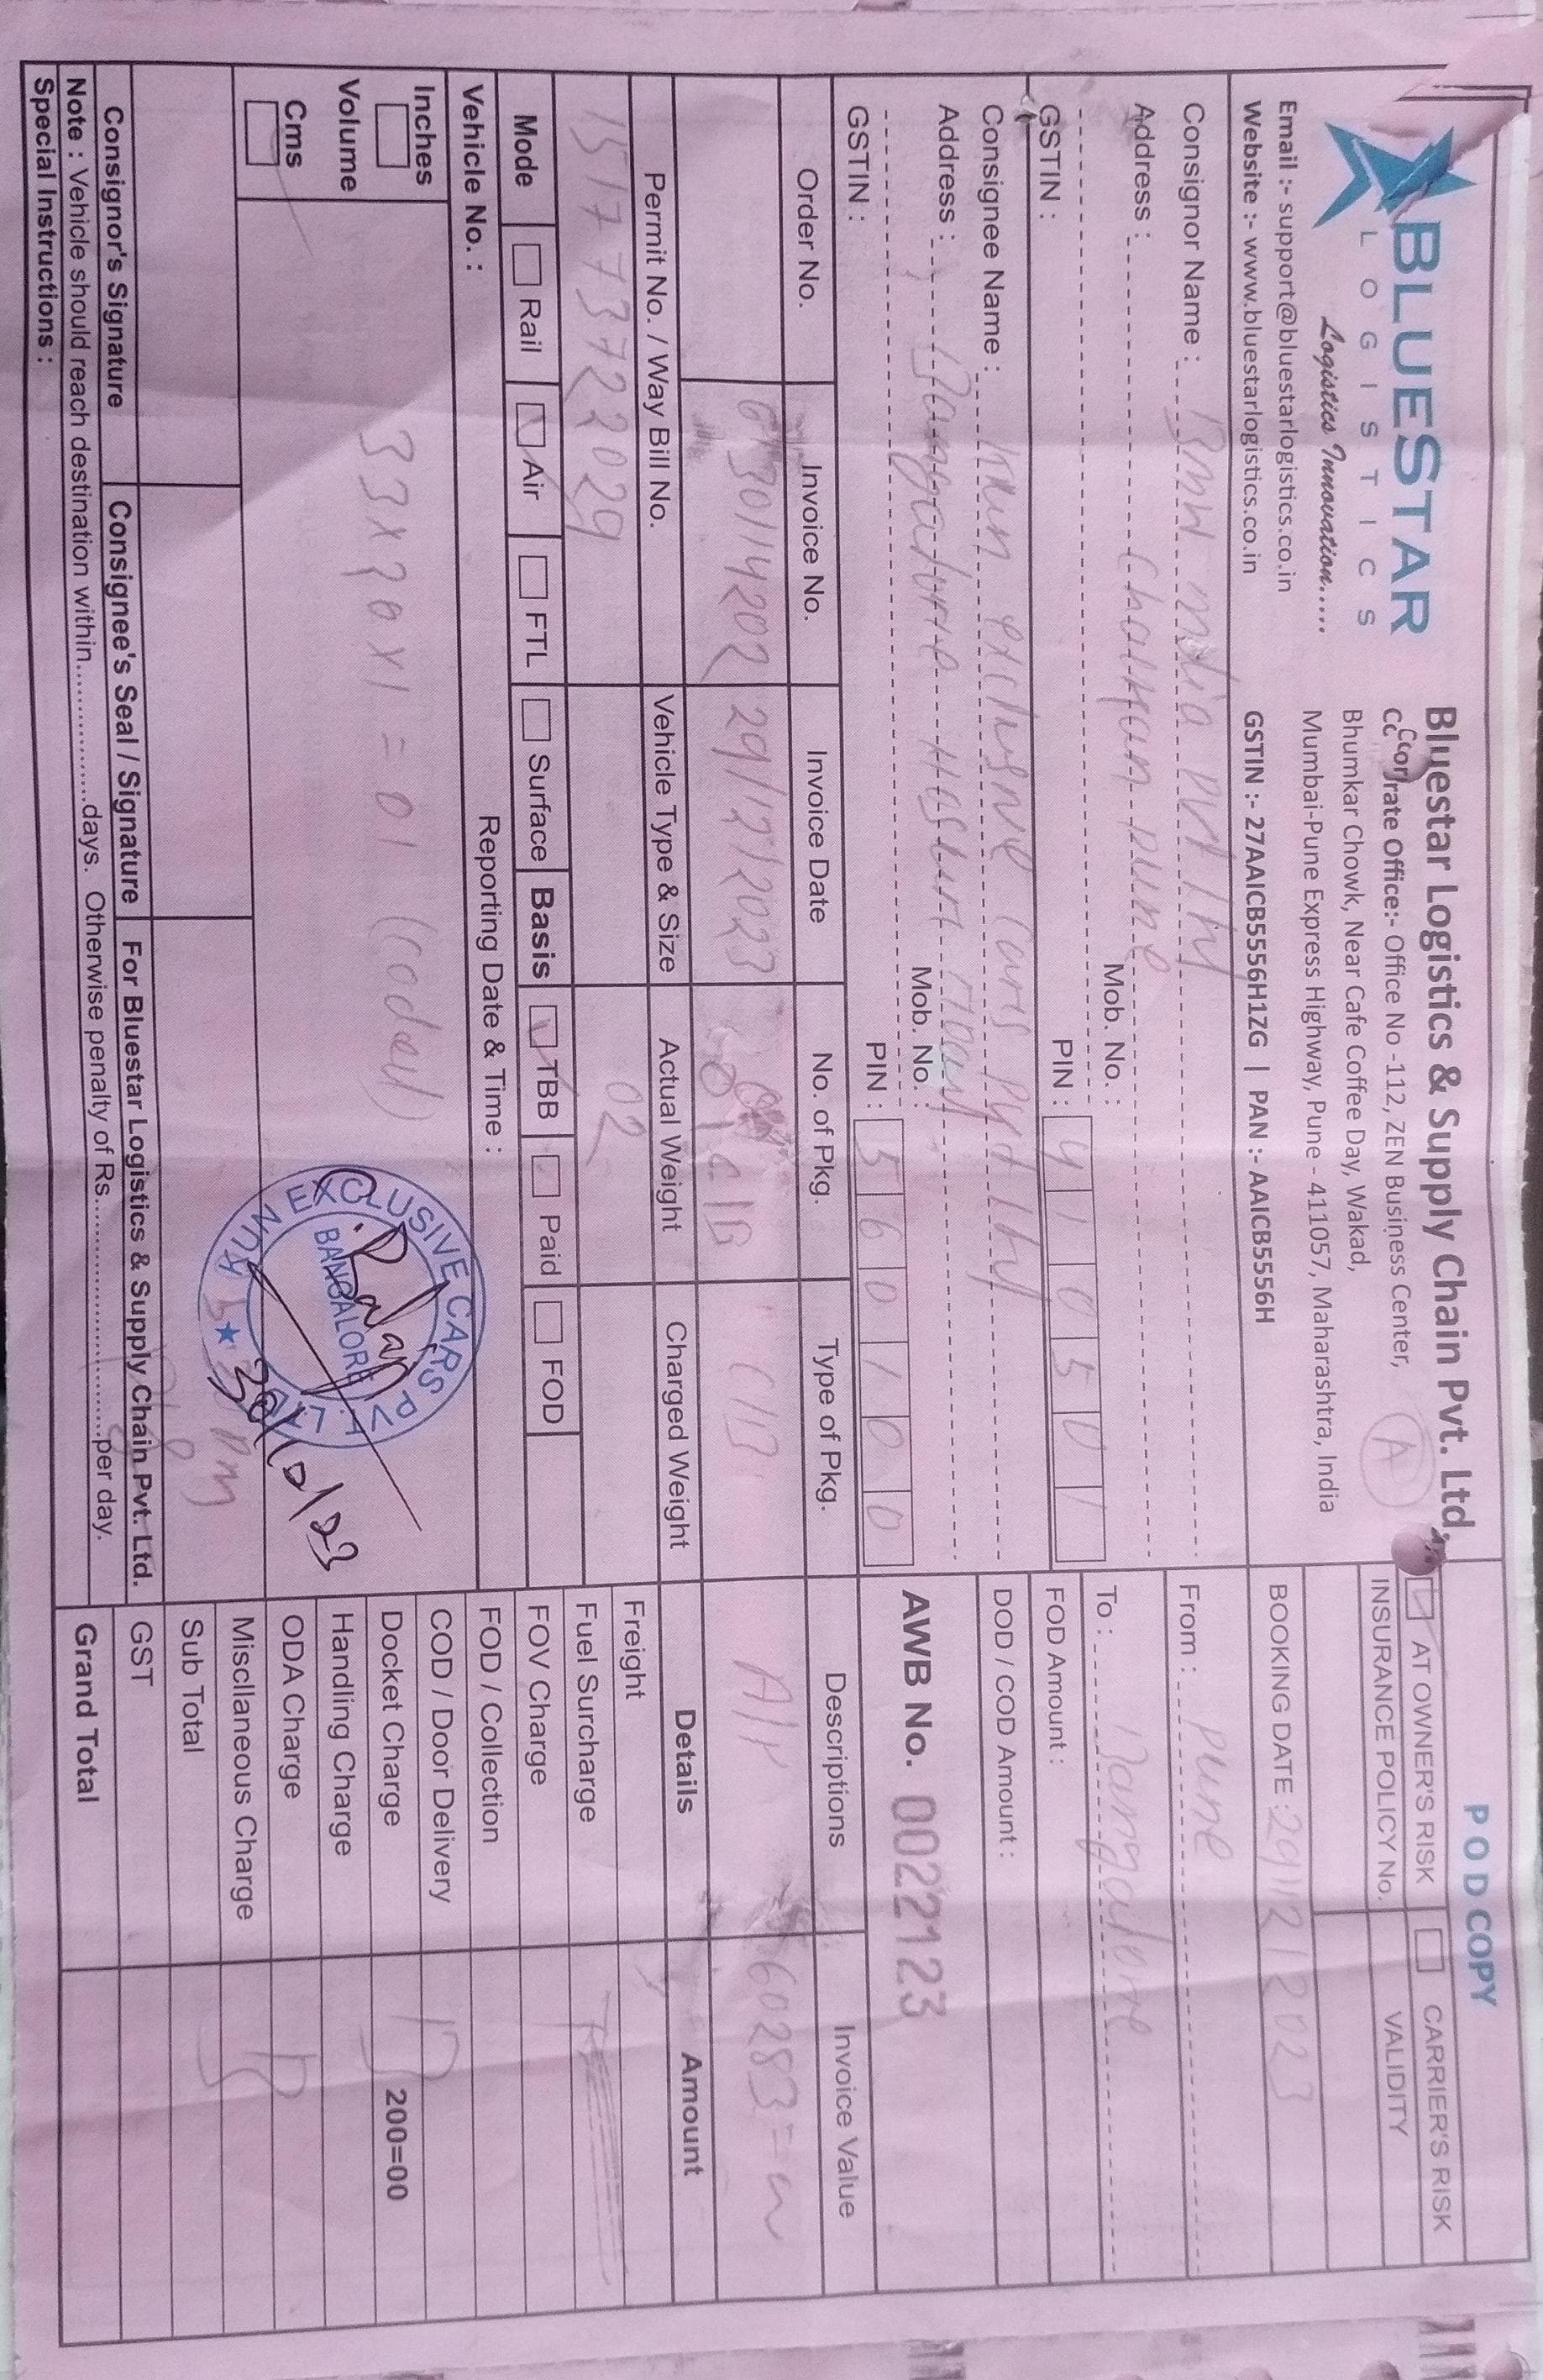 POD COPY
BLUESTAR
LOGISTICS
Logistics Innovation.....
Email :- support@bluestarlogistics.co.in
Website :- www.bluestarlogistics.co.in
Bluestar Logistics & Supply Chain Pvt. Ltd.
rate Office:- Office No -112, ZEN Business Center,
Bhumkar Chowk, Near Cafe Coffee Day, Wakad,
Mumbai-Pune Express Highway, Pune - 411057, Maharashtra, India
GSTIN :- 27AAICB5556H1ZG | PAN :- AAICB5556H
A
AT OWNER'S RISK CARRIER'S RISK
INSURANCE POLICY No. VALIDITY
BOOKING DATE : 29/12/2023
Consignor Name : BMW India PVT ltd
Address : Chakan pune
Mob. No. :
PIN : 410501
GSTIN :
From : pune
To : Bangalore
FOD Amount :
DOD / COD Amount :
Consignee Name : Kun exclusive cars pvt ltd
Address : Bangalore Hosur road
Mob. No. :
PIN : 560100
GSTIN :
AWB No. 0022123
Order No. Invoice No. Invoice Date No. of Pkg. Type of Pkg. Descriptions Invoice Value
30114202 29/12/2023 01 C/B C/B A/P 60283=
Permit No. / Way Bill No. Vehicle Type & Size Actual Weight Charged Weight Details Amount
151773722029 02
Freight
Fuel Surcharge
FOV Charge
FOD / Collection
COD / Door Delivery
Docket Charge 200=00
Handling Charge
ODA Charge
Miscllaneous Charge
Sub Total
GST
Grand Total
Mode Rail Air FTL Surface Basis TBB Paid FOD
Vehicle No. : Reporting Date & Time :
Inches
Volume
Cms
33x20x1 = 01 (coded)
KUN EXCLUSIVE CARS PVT. LTD.
BANGALORE
Pm
Consignor's Signature Consignee's Seal / Signature For Bluestar Logistics & Supply Chain Pvt. Ltd.
Note : Vehicle should reach destination within.................days. Otherwise penalty of Rs.............................per day.
Special Instructions :